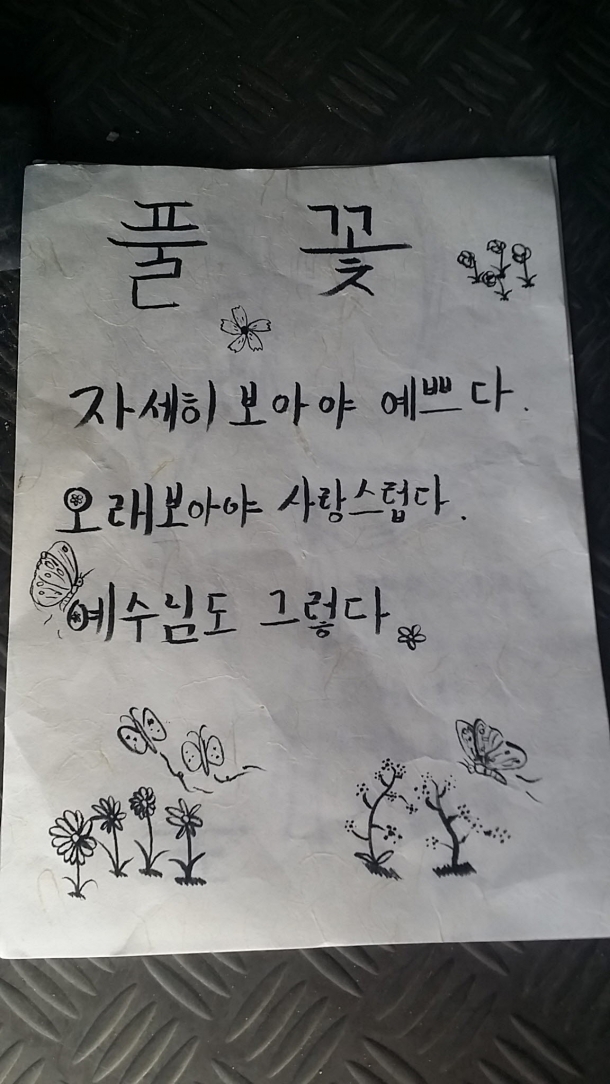 풀 꽃
자세히 보아야 예쁘다.
오래보아야 사랑스럽다.
예수님도 그렇다